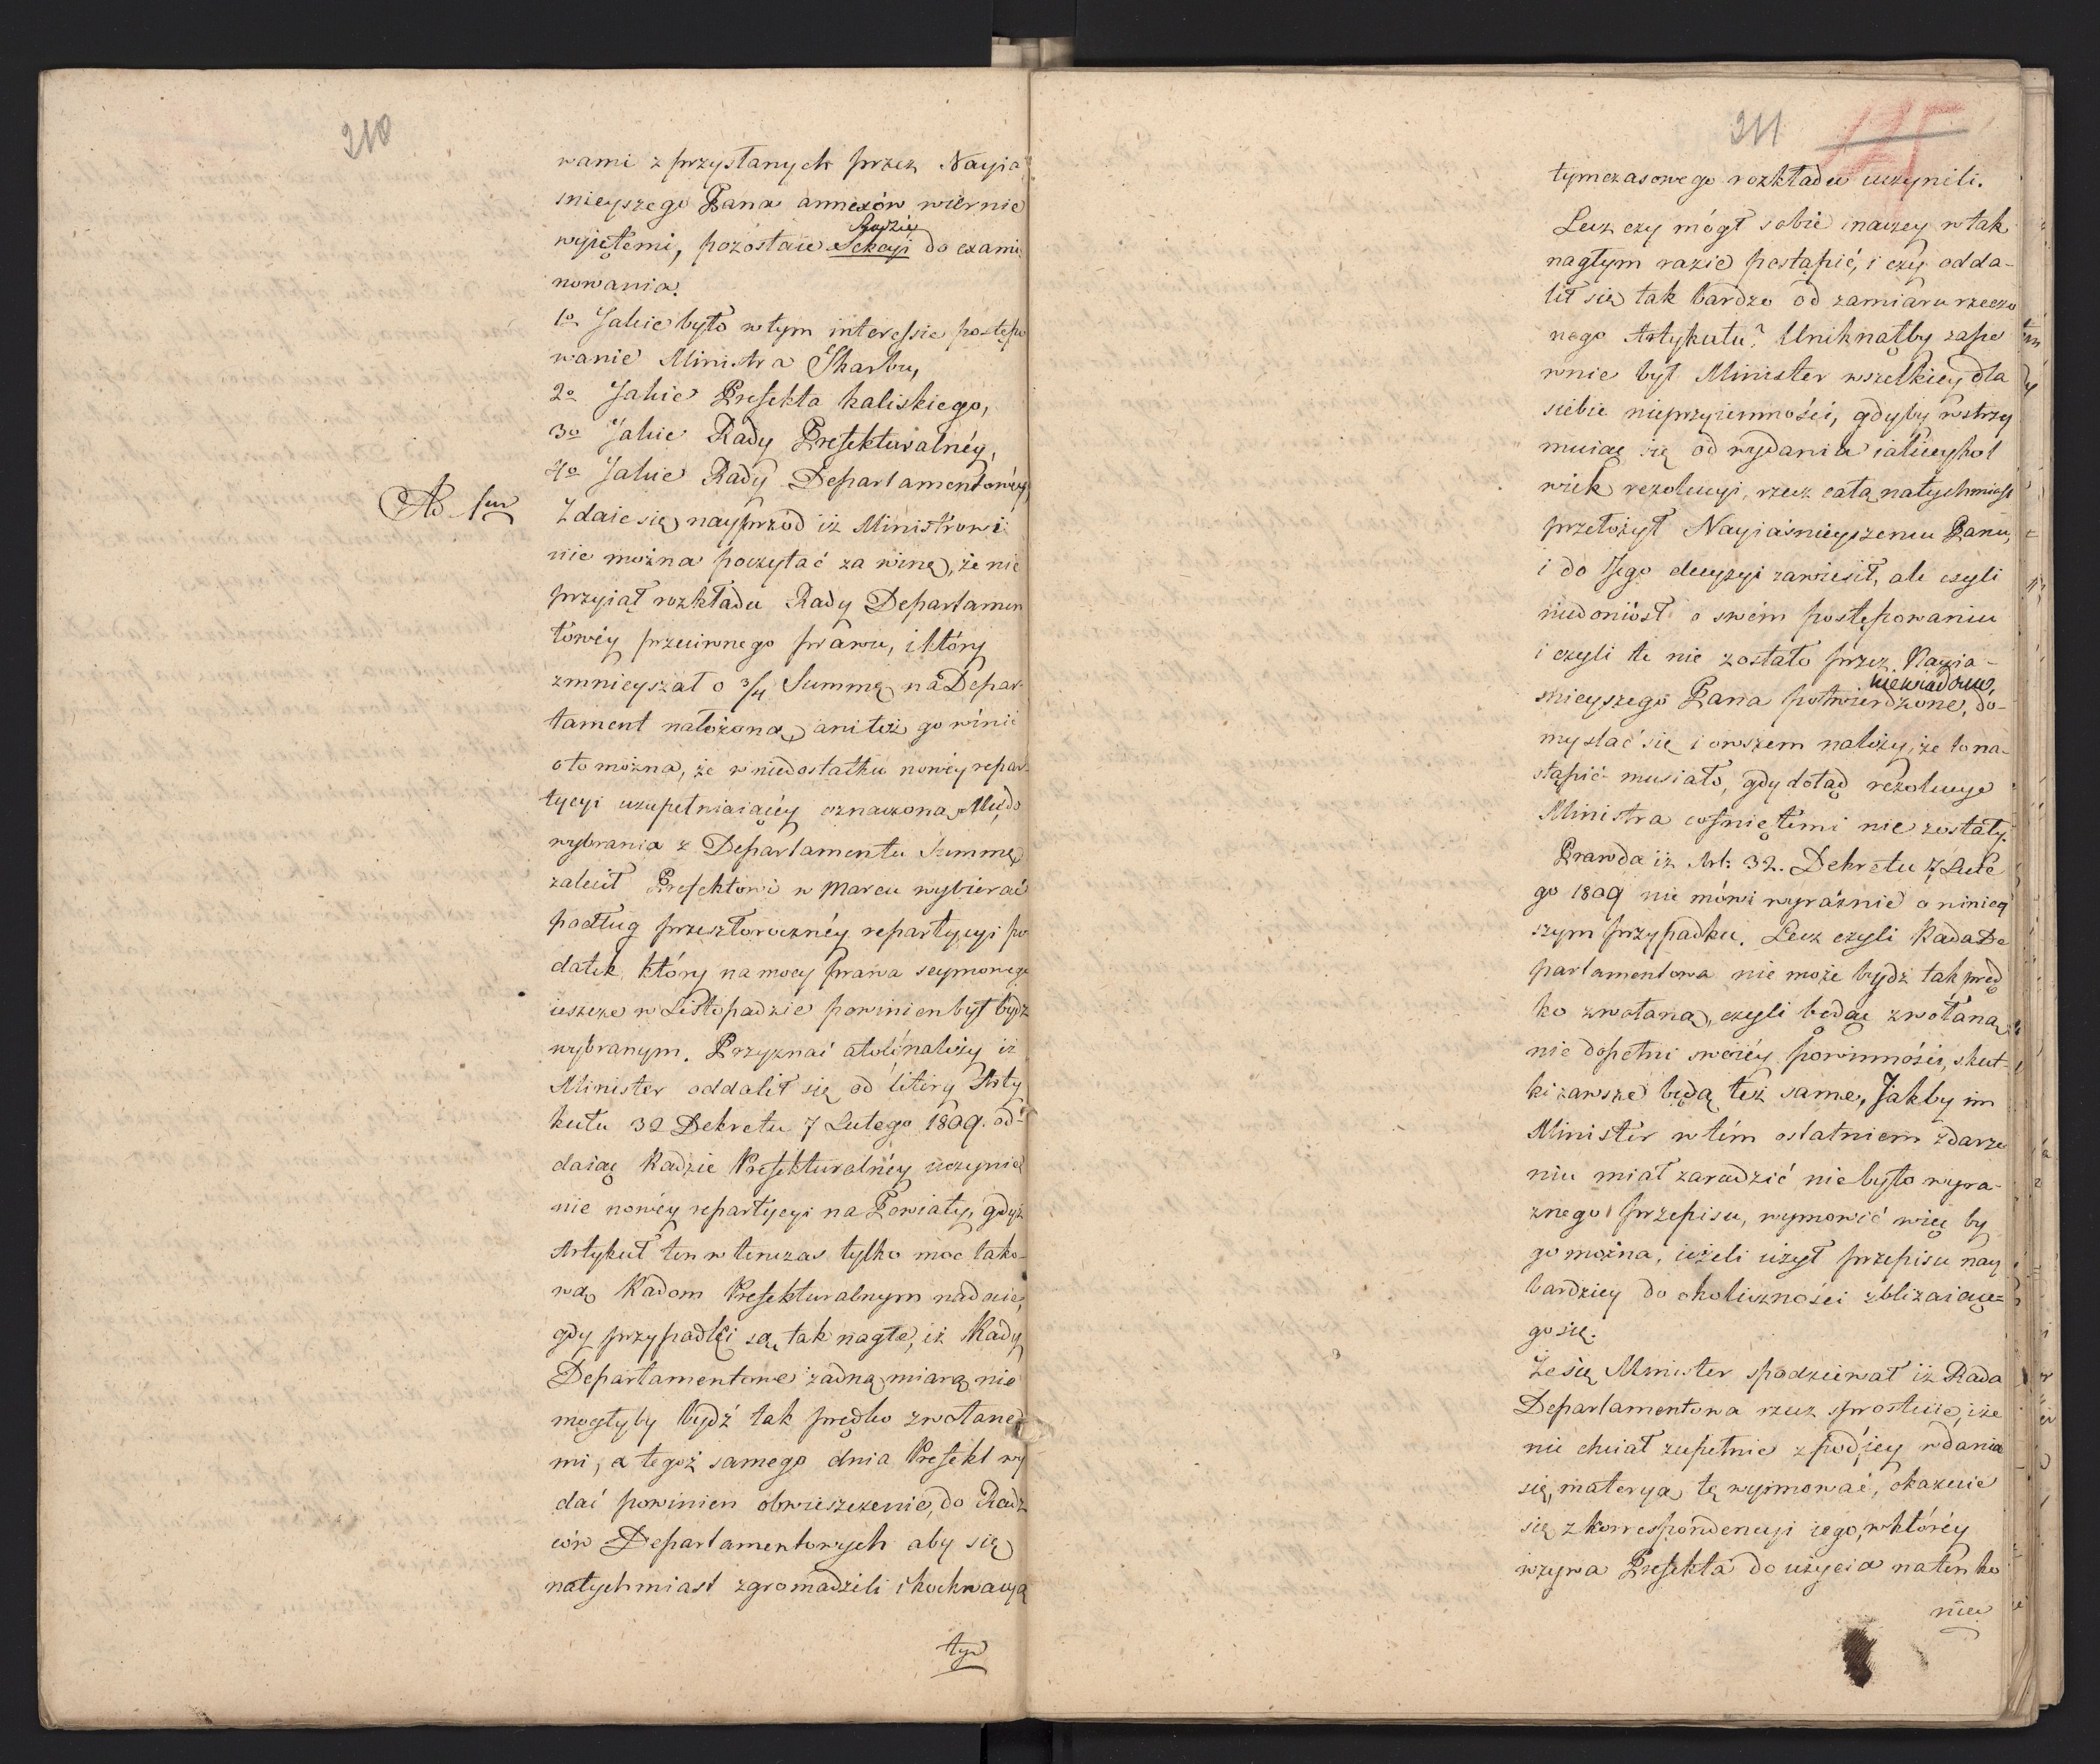 210
wami z przysłanych przez Nayia
śnieyszego Pana annexów wiernie
wyiętemi, pozostaie Sekcyi do exami
nowania.
1o Jakie było w tym interessie postępo
wanie Ministra Skarbu,
2o Jakie Prefekta kaliskiego,
3o Jakie Rady Prefekturalnéy,
4o Jakie Rady Departamentowéy
Ad 1um
Zdaie się nayprzód iż Ministrowi
nie można poczytać za winę, że nie
przyiął rozkładu Rady Departamen
towéy przeciwnego prawu, i który
zmnieyszał o 3/4 Summę na Depar-
tament nałożoną, ani też go winić
o to można, że w niedostatku nowéy repar-
tycyi uzupełniaiącéy oznaczoną Mu, do
wybrania z Departamentu Summę
zalecił Prefektowi w Marcu wybierać
podług przeszłorocznéy repartycyi po
datek, który na mocy prawa seymowego
ieszcze w Listopadzie powinien był bydź
wybranym. Przyznać atoli należy iż
Minister oddalił się od litery Arty
kułu 32 Dekretu 7 Lutego 1809. od-
daiąc Radzie Prefekturalnéy uczynie
nie nowéy repartycyi na Powiaty, gdyż
Artykuł ten w tenczas tylko moc tako-
wą Radom Prefekturalnym nadaie,
gdy przypadki są tak nagłe, iż Rady
Departamentowe żadną miarą nie
mogłyby bydź tak prędko zwołane
mi, a tegoż samego dnia Prefekt wy
dać powinien obwieszczenie, do Radz
ców Departamentowych aby się
natychmiast zgromadzili i kochwacyą
tym
211
125
tymczasowego rozkładu uczynili.
Lecz czy mógł sobie inaczey w tak
nagłym razie postąpić, i czy odda-
lił się tak bardzo od zamiaru rzeczo
nego Artykułu? Uniknąłby zape
wnie był Minister wszelkiey dla
siebie nieprzyiemności, gdyby wstrzy
muiąc się od wydania iakieykol
wiek rezolucyi, rzecz całą natychmiast
przełożył Nayiaśnieyszemu Panu,
i do Jego decyzyi zawiesił, ale czyli
niedoniósł o swém postępowaniu
i czyli te nie zostało przez Nayia-
niewiadomo,
śnieyszego Pana potwierdzone, do-
myślać się i owszem należy, że to na-
stąpić musiało, gdy dotąd rezolucye
Ministra cofniętemi nie zostały.
Prawda iż Art: 32. Dekretu 7 Lute
go 1809 nie mówi wyraźnie o niniey
szym przypadku. Lecz czyli Rada De
partamentowa nie może bydź tak pręd
ko zwołana, czyli będąc zwołana
nie dopełni swoiéy powinności, skut-
ki zawsze będą też same, Jakby im
Minister w tém ostatniem zdarze
niu miał zaradzić nie było wyra-
znego przepisu, wymówić więc by
go można, ieżeli użył przepisu nay
bardziey do okoliczności zbliżaiące-
go się.
Że się Minister spodziewał iż Rada
Departamentowa rzecz sprostuie, i że
nie chciał zupełnie z pod iey wdania
się, materyą tę wyimować, okazuie
się z korrespondencyi iego, w któréy
wzywa Prefekta do użycia na ten ko
niec